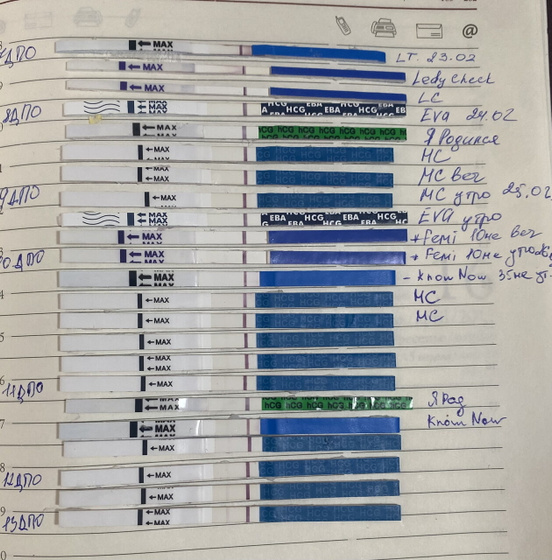 ДПО ← MAX LT. 23.02
← MAX Ledy Check
← MAX LC
8ДПО MAX HCG EBA HCG EBA Eva 24.02
← MAX hCG hCG hCG hCG hCG Я Родился
← MAX МС
← MAX МС веч
9ДПО ← MAX МС утро 25.02
MAX EBA HCG EBA HCG EVA утро
← MAX + Femi 10ме веч
ДПО ← MAX + Femi 10ме утро
← MAX - Know Now 35ме
← MAX МС
← MAX МС
← MAX
← MAX
← MAX
11ДПО ← MAX hCG hCG hCG hCG Я Род
← MAX Know Now
← MAX
12ДПО ← MAX
← MAX
13ДПО ← MAX